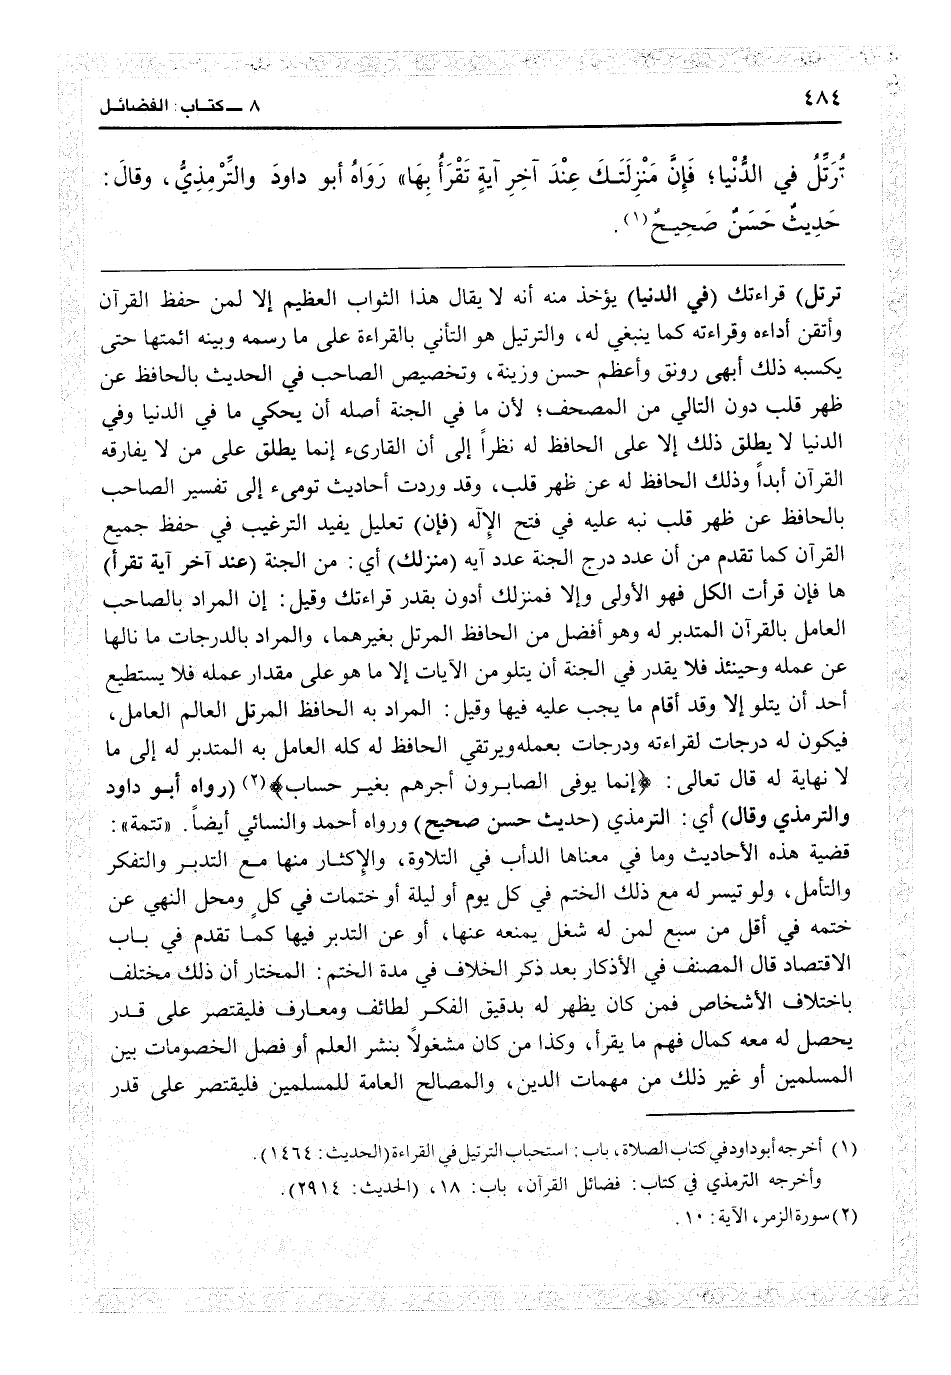 ٤٨٤
٨ ــ كتـاب: الفضائـل
تُرَتِّلُ في الدُّنْيا؛ فَإِنَّ مَنْزِلَتَـكَ عِنْدَ آخِرِ آيةٍ تَقْرَأُ بِهَا» رَوَاهُ أبو داودَ والتِّرْمِذِيُّ، وقالَ:
حَدِيثٌ حَسَنٌ صَحِيـحٌ(١).
ترتل) قراءتك (في الدنيا) يؤخذ منه أنه لا يقال هذا الثواب العظيم إلا لمن حفظ القرآن
وأتقن أداءه وقراءته كما ينبغي له، والترتيل هو التأني بالقراءة على ما رسمه وبينه ائمتها حتى
يكسبه ذلك أبهى رونق وأعظم حسن وزينة، وتخصيص الصاحب في الحديث بالحافظ عن
ظهر قلب دون التالي من المصحف؛ لأن ما في الجنة أصله أن يحكي ما في الدنيا وفي
الدنيا لا يطلق ذلك إلا على الحافظ له نظراً إلى أن القارىء إنما يطلق على من لا يفارقه
القرآن أبداً وذلك الحافظ له عن ظهر قلب، وقد وردت أحاديث تومىء إلى تفسير الصاحب
بالحافظ عن ظهر قلب نبه عليه في فتح الإِلٰه (فإن) تعليل يفيد الترغيب في حفظ جميع
القرآن كما تقدم من أن عدد درج الجنة عدد آيه (منزلك) أي: من الجنة (عند آخر آية تقرأ)
ها فإن قرأت الكل فهو الأولى وإلا فمنزلك أدون بقدر قراءتك وقيل: إن المراد بالصاحب
العامل بالقرآن المتدبر له وهو أفضل من الحافظ المرتل بغيرهما، والمراد بالدرجات ما نالها
عن عمله وحينئذ فلا يقدر في الجنة أن يتلو من الآيات إلا ما هو على مقدار عمله فلا يستطيع
أحد أن يتلو إلا وقد أقام ما يجب عليه فيها وقيل: المراد به الحافظ المرتل العالم العامل،
فيكون له درجات لقراءته ودرجات بعمله ويرتقي الحافظ له كله العامل به المتدبر له إلى ما
لا نهاية له قال تعالى: ﴿إنما يوفى الصابرون أجرهم بغير حساب﴾(٢) (رواه أبـو داود
والترمذي وقال) أي: الترمذي (حديث حسن صحيح) ورواه أحمد والنسائي أيضاً. «تتمة»:
قضية هذه الأحاديث وما في معناها الدأب في التلاوة، والإِكثار منها مع التدبر والتفكر
والتأمل، ولو تيسر له مع ذلك الختم في كل يوم أو ليلة أو ختمات في كلٍ ومحل النهي عن
ختمه في أقل من سبع لمن له شغل يمنعه عنها، أو عن التدبر فيها كمـا تقدم في بـاب
الاقتصاد قال المصنف في الأذكار بعد ذكر الخلاف في مدة الختم: المختار أن ذلك مختلف
باختلاف الأشخاص فمن كان يظهر له بدقيق الفكـر لطائف ومعـارف فليقتصر على قـدر
يحصل له معه كمال فهم ما يقرأ، وكذا من كان مشغولاً بنشر العلم أو فصل الخصومات بين
المسلمين أو غير ذلك من مهمات الدين، والمصالح العامة للمسلمين فليقتصر على قدر
(١) أخرجه أبو داود في كتاب الصلاة، باب: استحباب الترتيل في القراءة (الحديث: ١٤٦٤).
وأخرجه الترمذي في كتاب: فضائل القرآن، باب: ١٨، (الحديث: ٢٩١٤).
(٢) سورة الزمر، الآية: ١٠.